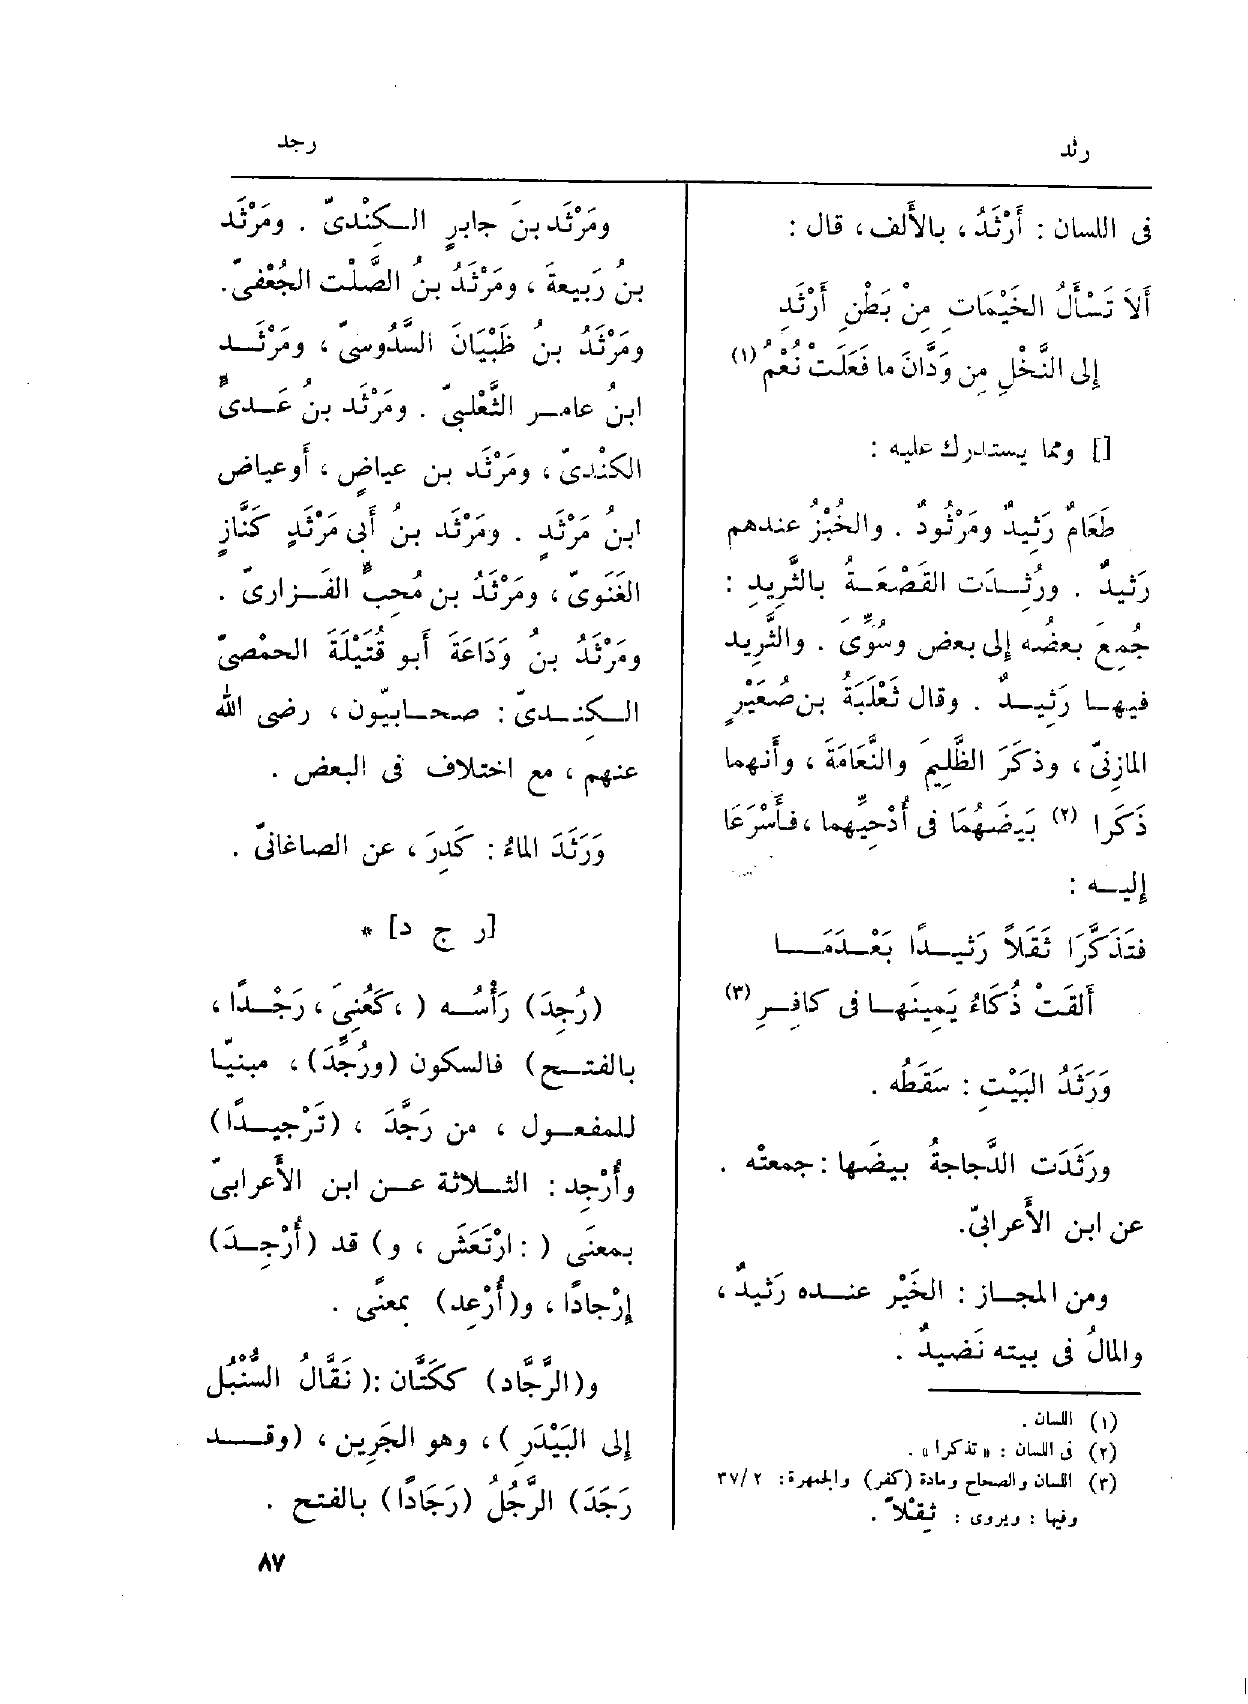 رثد
رجد
فى اللسان : أَرْثَدُ ، بالأَلف ، قال :
أَلاَ تَسْأَلُ الخَيْمَاتِ مِنْ بَطْنِ أَرْثَدِ
إلى النَّخْلِ مِن وَدَّانَ ما فَعَلَتْ نُعْمُ (١)
[] ومما يستدرك عليه :
طَعَامٌ رَثِيدٌ ومَرْثُودٌ . والخُبْزُ عندهم
رَثيدٌ . ورُثِـدَت القَصْعَـةُ بالثَّرِيدِ :
جُمِعَ بعضُه إلى بعض وسُوِّىَ . والثَّرِيد
فيهـا رَثِيـدٌ . وقال ثَعْلَبَةُ بن صُعَيْرٍ
المازِنىّ ، وذكَرَ الظَّلِيمَ والنَّعَامَةَ ، وأَنهما
ذَكَرا (٢) بَيضَهُمَا فى أُدْحِيِّهِما ، فـأَسْرَعَا
إليـه :
فتَذَكَّرَا ثَقَلاً رَثِيـدًا بَعْـدَمَـــا
أَلقَتْ ذُكَاءُ يَمِينَهـا فى كافِـرِ (٣)
وَرَثَدُ البَيْتِ : سَقَطُه .
ورَثَدَت الدَّجاجةُ بيضَها : جمعتْه .
عن ابن الأَعرابىّ.
ومن المجـاز : الخَيْر عنـده رَثيدٌ ،
والمالُ فى بيته نَضيدٌ .
(١) اللسان .
(٢) فى اللسان : « تذكرا » .
(٣) اللسان والصحاح ومادة (كفر) والجمهرة: ٢ /٣٧
وفيها : ويروى : ثِقْلاً .
ومَرْثَد بنَ جابرٍ الـكِنْدىّ . ومَرْثَد
بنُ رَبيعةَ ، ومَرْثَدُ بنُ الصَّلْت الجُعْفىّ.
ومَرْثَدُ بنُ ظَبْيَانَ السَّدُوسىّ ، ومَرْثَـد
ابنُ عامـر الثَّعْلبىّ . ومَرْثَد بنُ عَـدىٍّ
الكنْدىّ ، ومَرْثَد بن عياضٍ ، أَوعياض
ابنُ مَرْثَدٍ . ومَرْثَد بنُ أَبى مَرْثَدٍ كَنَّازٍ
الغَنَوىّ ، ومَرْثَدُ بن مُحِبٍّ الفَـزارىّ .
ومَرْثَدُ بنُ وَدَاعَةَ أَبو قُتَيْلَةَ الحمْصىّ
الـكِنـدىّ : صحـابيّون ، رضى الله
عنهم ، مع اختلاف فى البعض .
وَرَثَدَ الماءُ : كَدِرَ ، عن الصاغانىّ .
[ر ج د] *
(رُجِدَ) رَأْسُـه ( ، كَعُنِىَ ، رَجْـدًا ،
بالفتـح) فالسكون (ورُجِّدَ) ، مبنيّا
للمفعـول ، من رَجَّدَ ، (تَرْجيـدًا)
وأُرْجِد : الثـلاثة عـن ابن الأَعرابىّ
بمعنَى ( : ارْتَعَشَ ، و) قد (أُرْجِـدَ)
إِرْجادًا ، و(أُرْعِد) بمعنًى .
و(الرَّجَّاد) ككَتَّان :( نَقَّالُ السُّنْبُل
إِلى البَيْدَرِ ) ، وهو الجَرِين ، (وقـــد
رَجَدَ) الرَّجُلُ (رَجَادًا) بالفتح .
٨٧